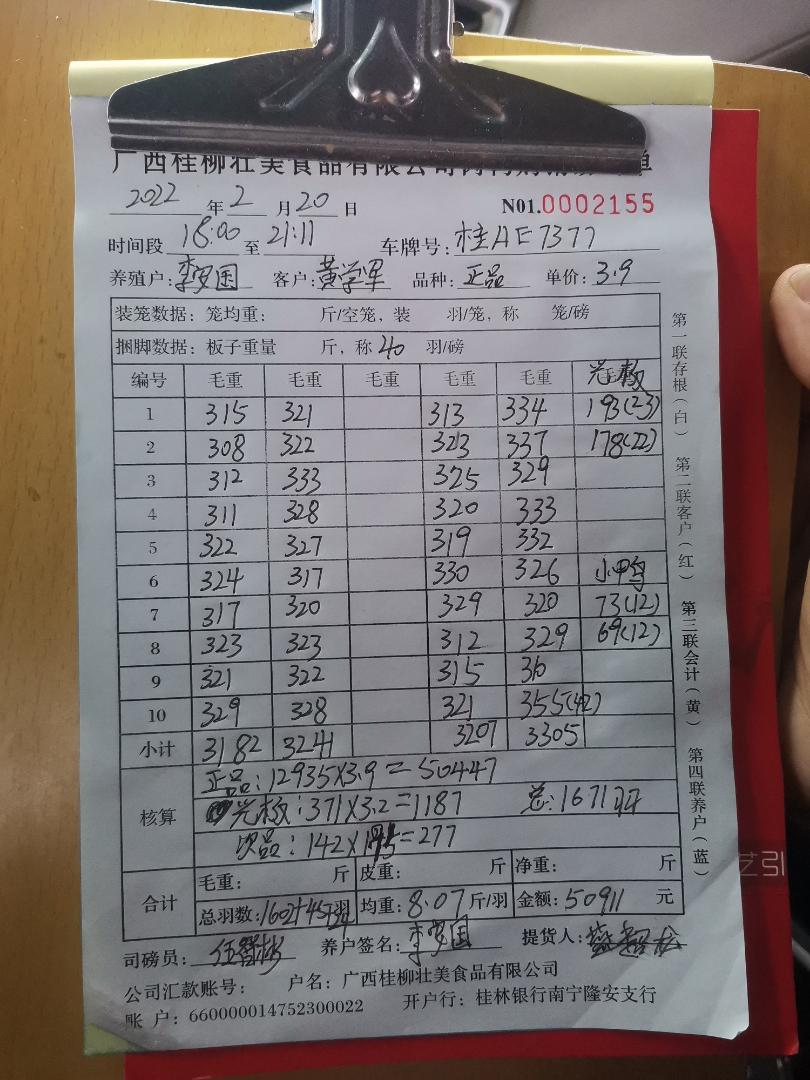 广西桂柳壮美食品有限公司
2022 年 2 月 20 日 N01.0002155
时间段 18:00 至 21:11 车牌号: 桂AE7377
养殖户: 李罗国 客户: 黄学军 品种: 正品 单价: 3.9
装笼数据: 笼均重: 斤/空笼, 装 羽/笼, 称 笼/磅
捆脚数据: 板子重量 斤, 称 40 羽/磅
编号 毛重 毛重 毛重 毛重 毛重 光板
1 315 321 313 334 193(23)
2 308 322 323 337 178(22)
3 312 333 325 329
4 311 328 320 333
5 322 327 319 332
6 324 317 330 326 小甲鸟
7 317 320 329 320 73(12)
8 323 323 312 329 69(12)
9 321 322 315 310
10 329 328 321 355(42)
小计 3182 3241 3207 3305
正品: 12935×3.9=50447
核算 光板: 371×3.2=1187 总: 1671羽
次品: 142×1.95=277
毛重: 斤 皮重: 斤 净重: 斤
合计
总羽数: 1602+45+24 均重: 8.07 斤/羽 金额: 50911 元
司磅员: 养户签名: 李罗国 提货人:
公司汇款账号: 户名: 广西桂柳壮美食品有限公司
账 户: 660000014752300022 开户行: 桂林银行南宁隆安支行
第一联存根(白) 第二联客户(红) 第三联会计(黄) 第四联养户(蓝)
艺引